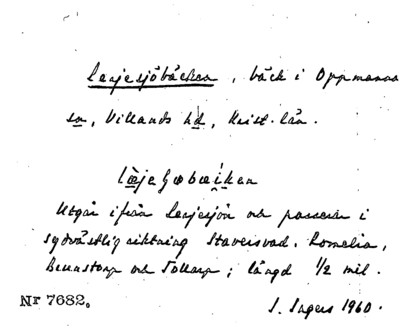 Lersjöbäcken, bäck i Oppmanna
sn, Villands hd, Krist. län.
Utgår ifrån Lersjön och passerar i
sydvästlig riktning Staversvad, Cornelia,
Bennstorp och Tollarp; längd 1/2 mil.
Nr 7682.
S. Ingers 1960.